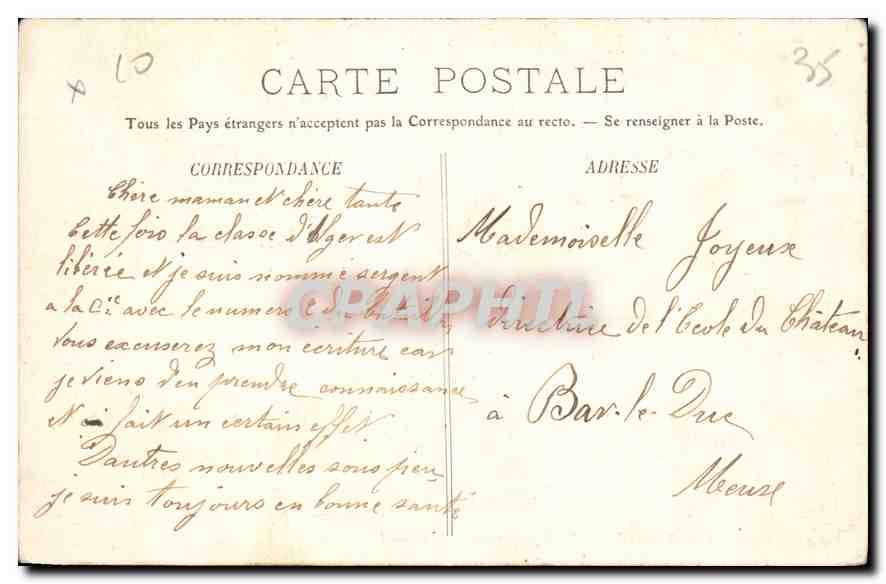 x 10
35
CARTE POSTALE
Tous les Pays étrangers n'acceptent pas la Correspondance au recto. — Se renseigner à la Poste.
CORRESPONDANCE
Chère maman et chère tante
Cette fois la classe d'Alger est
libérée et je suis nommé sergent
a la Cie avec le numero
vous excuserez mon écriture car
je viens d'en prendre connaissance
et a fait un certain effet
D'autres nouvelles sous peu
je suis toujours en bonne santé
ADRESSE
Mademoiselle Joyeux
directrice de l'Ecole du Château
à Bar-le-Duc
Meuse
CPAPHIL